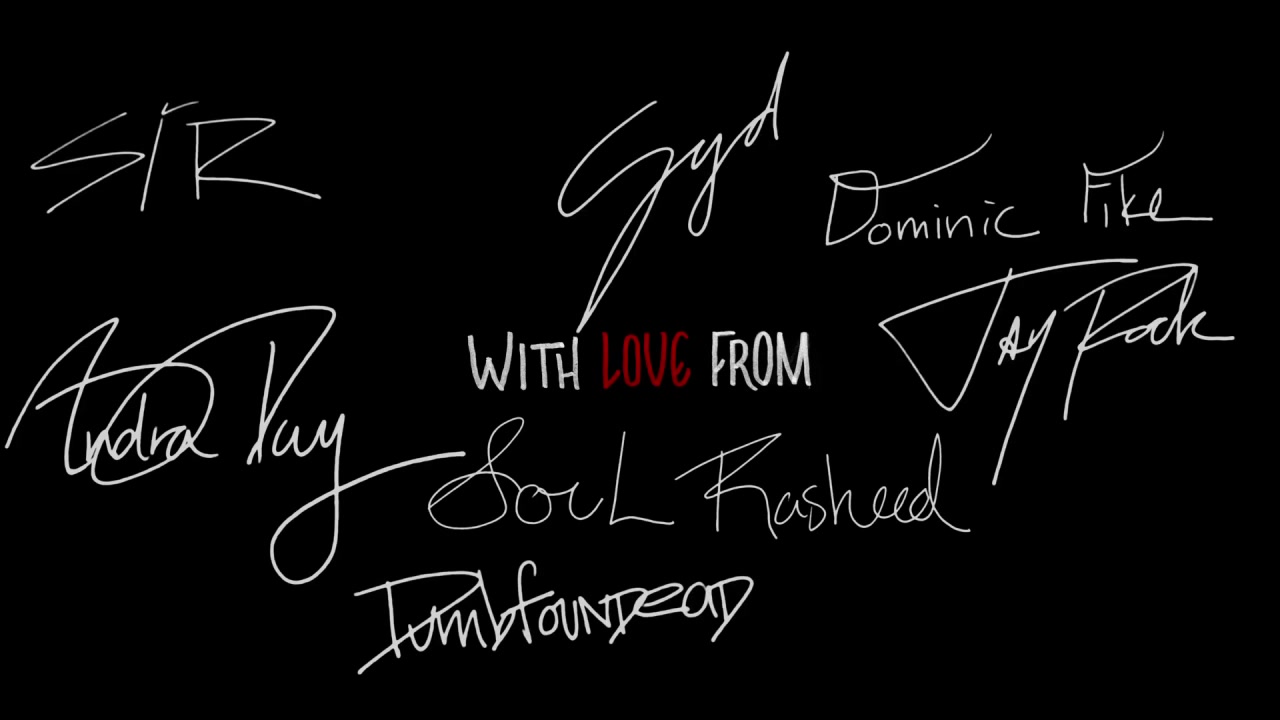 SiR
Gyd
Dominic Fike
Jay Rock
Andra Day
WITH LOVE FROM
Soul Rasheed
Dumbfoundead